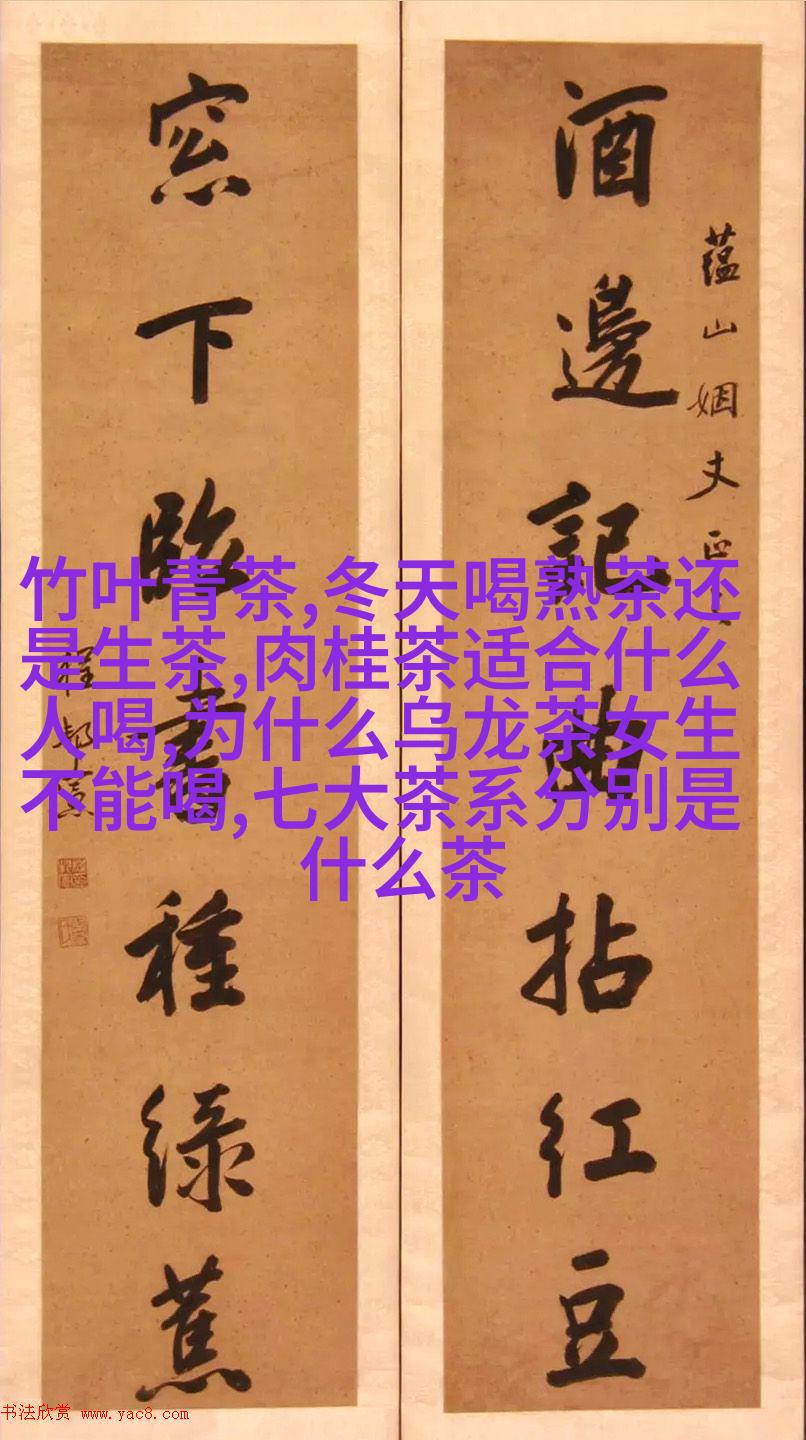 酒邊記曲拈紅豆
蕴山姻丈正
窓下臨書種綠蕉
程邦憲
竹叶青茶,冬天喝熟茶还
是生茶,肉桂茶适合什么
人喝,为什么乌龙茶女生
不能喝,七大茶系分别是
什么茶
书法欣赏 www.yac8.com